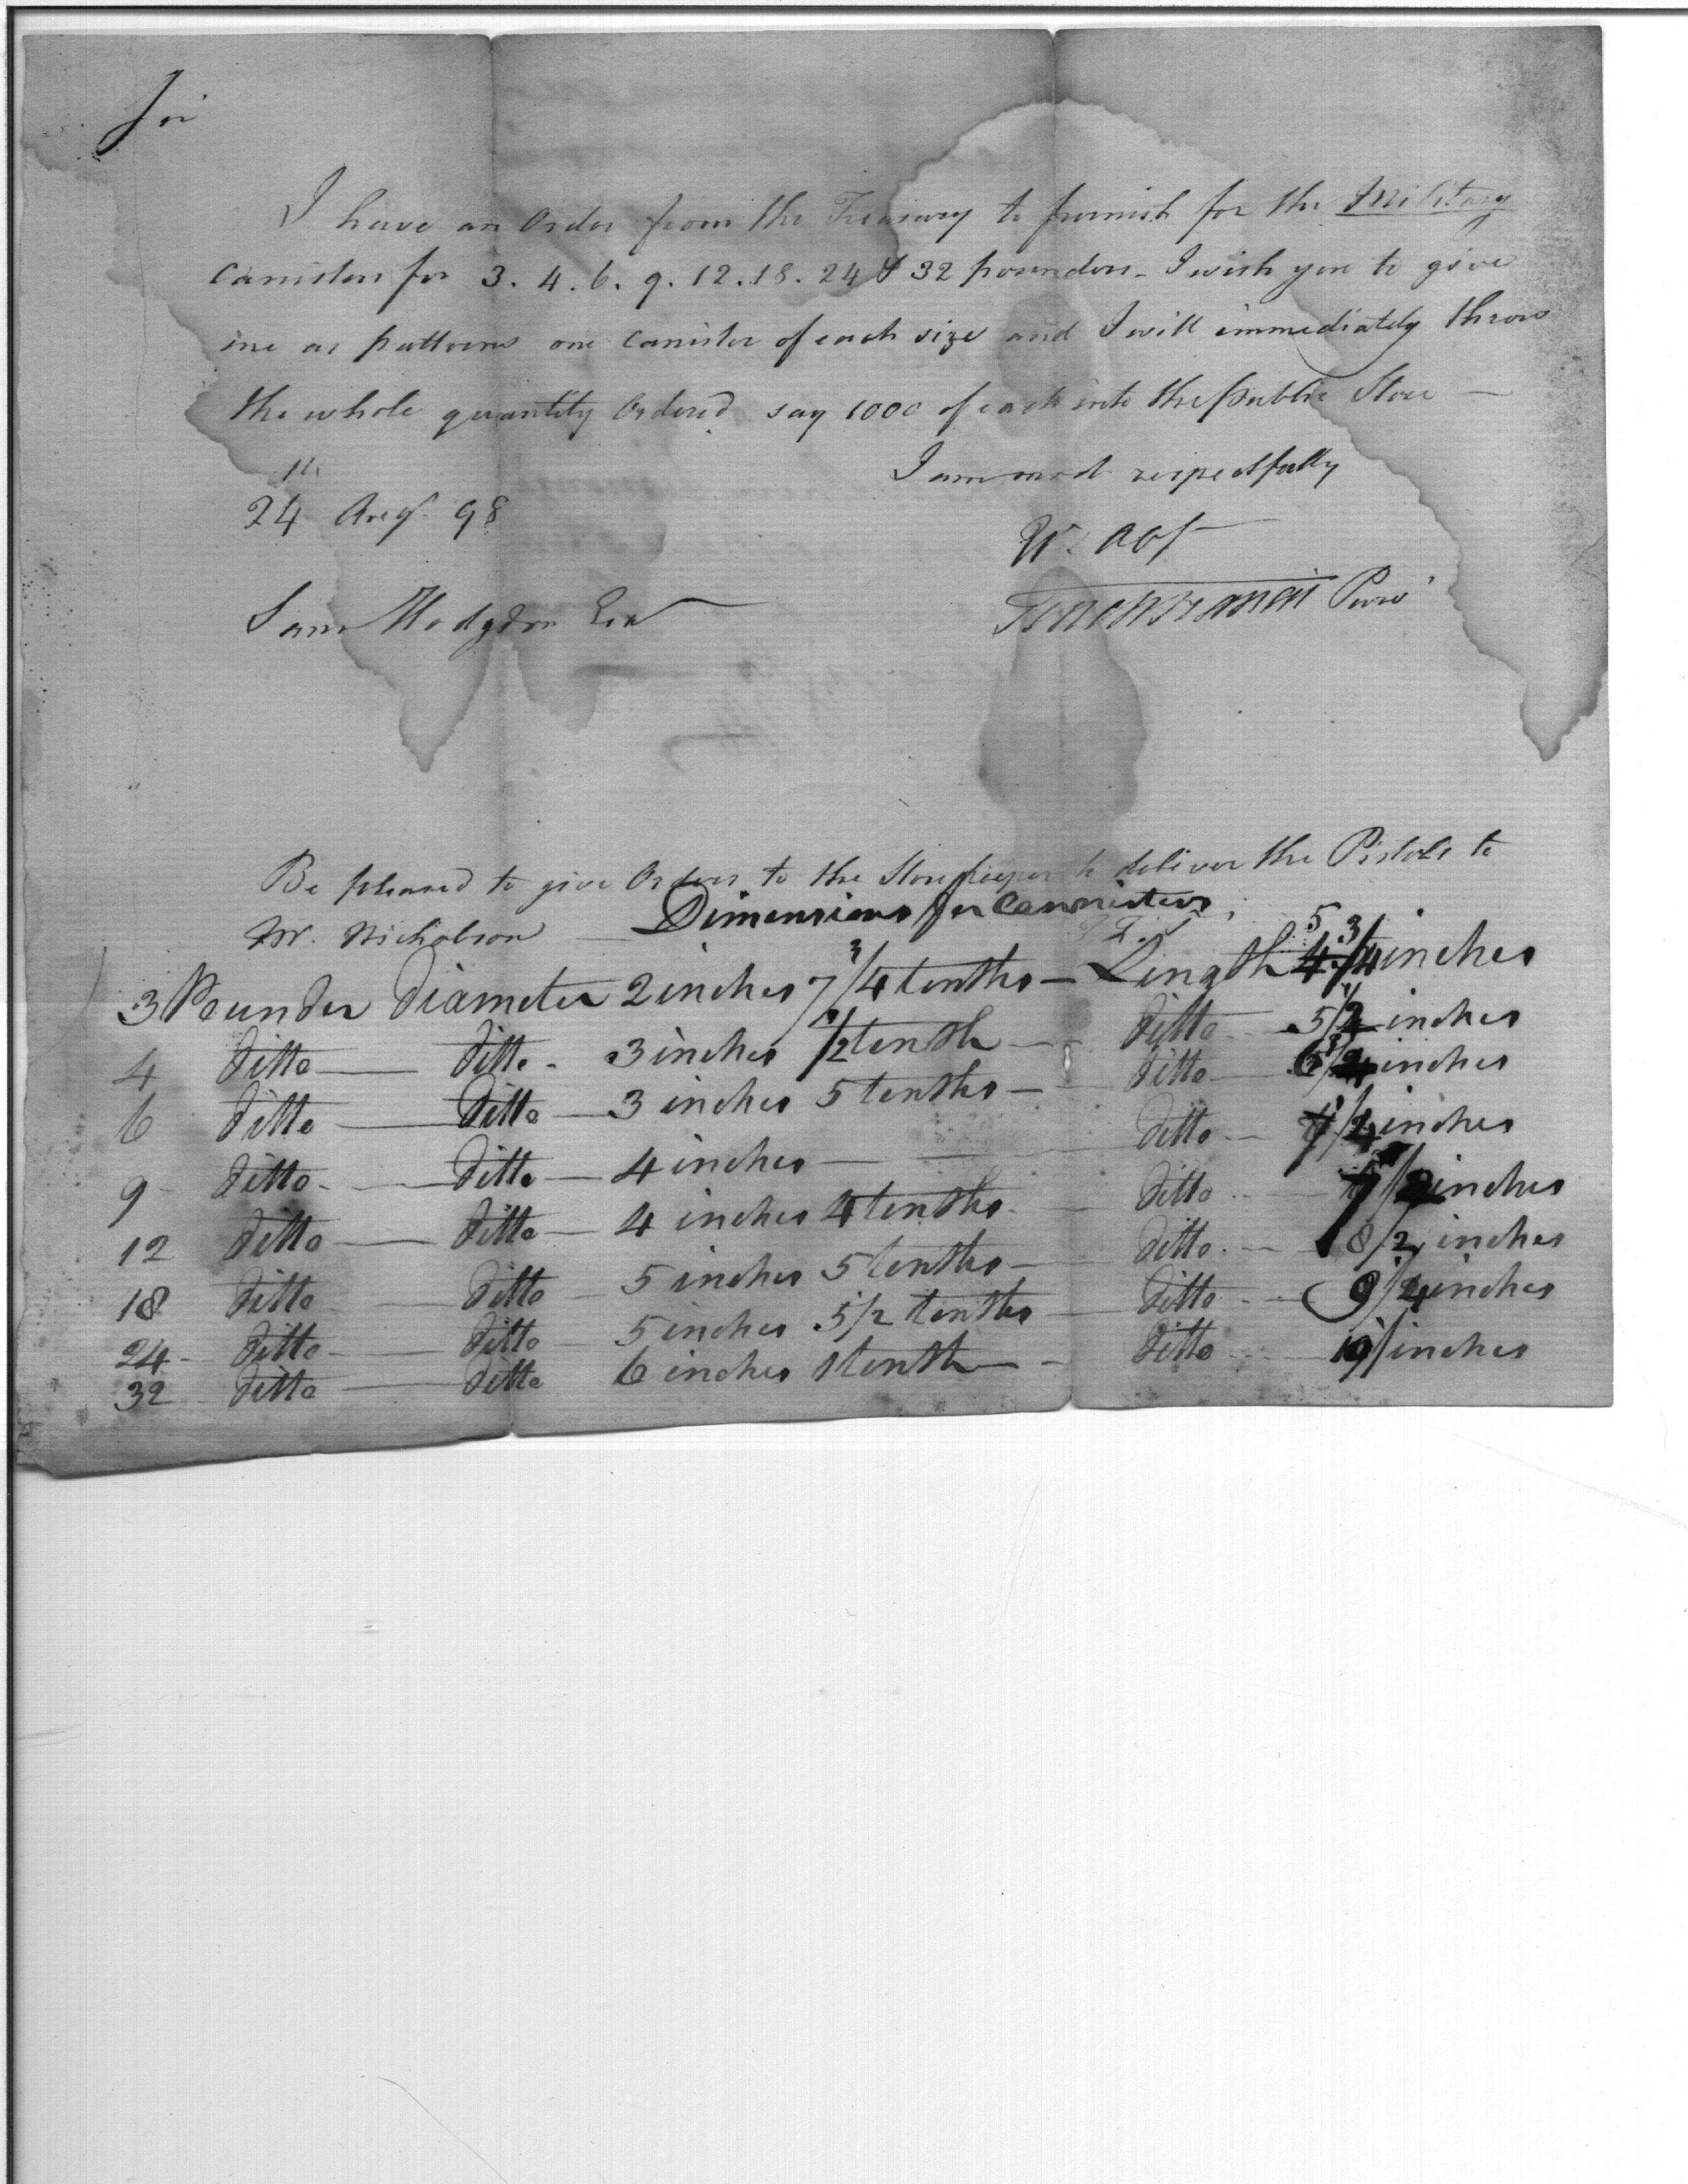 Sir
I have an Order from the Treasury to furnish for the Military
Canisters for 3. 4. 6. 9. 12. 18. 24 & 32 pounders - I wish you to give
me as patterns one Canister of each size and I will immediately throw
the whole quantity Ordered say 1000 of each into the public Store —
I am most respectfully
24 Augt 98
Sam Hodgdon Esqr
Tench Francis Purvr
Be pleased to give Orders to the Storekeeper to deliver the Pistols to
Mr. Nicholson —
Dimensions for Cannisters
3 Pounder Diameter 2 inches 7 3/4 tenths — Length 5 3/4 inches
4 Ditto — Ditto - 3 inches 1/2 tenth — Ditto — 5 1/2 inches
6 Ditto — Ditto — 3 inches 5 tenths — Ditto — inches
9 - Ditto - — Ditto — 4 inches — Ditto — inches
12 Ditto — Ditto — 4 inches 4 tenths - Ditto - inches
18 Ditto — Ditto 5 inches 5 tenths — Ditto. — 8 1/2 inches
24 - Ditto — Ditto 5 inches 5 1/2 tenths — Ditto - 9 inches
32 Ditto — Ditto 6 inches 1 tenth — Ditto - 10 inches